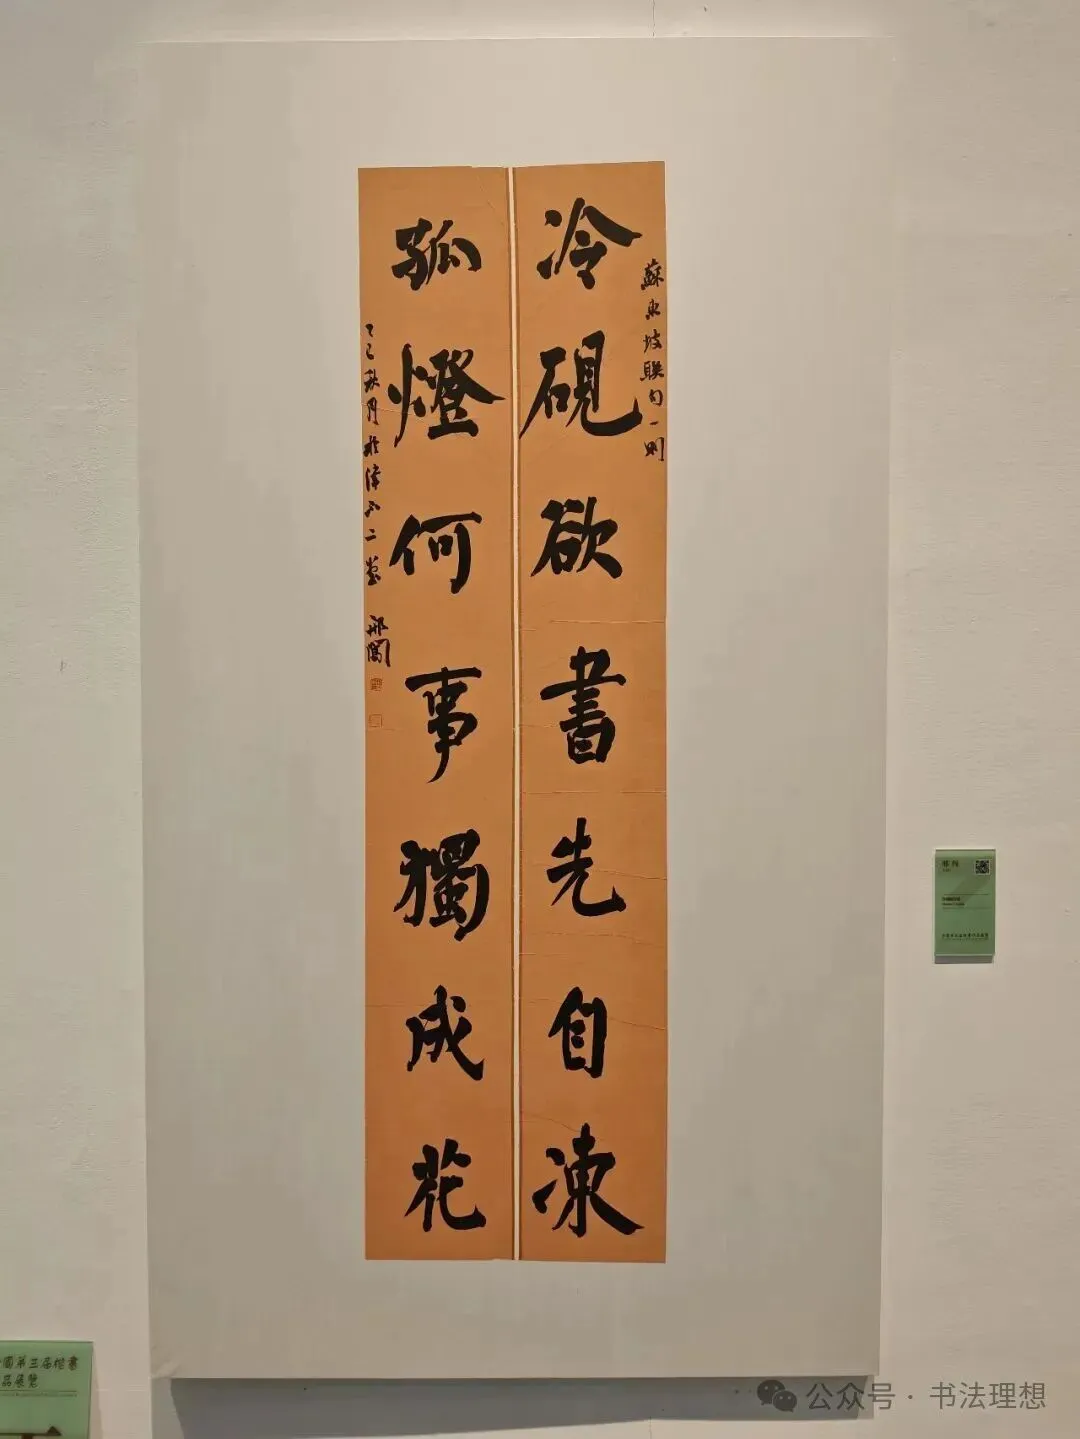 蘇東坡聯句一則
冷硯欲書先自凍
孤燈何事獨成花
乙巳秋月於津不二堂
邢
國第三届楷書
品展覽
公众号 · 书法理想